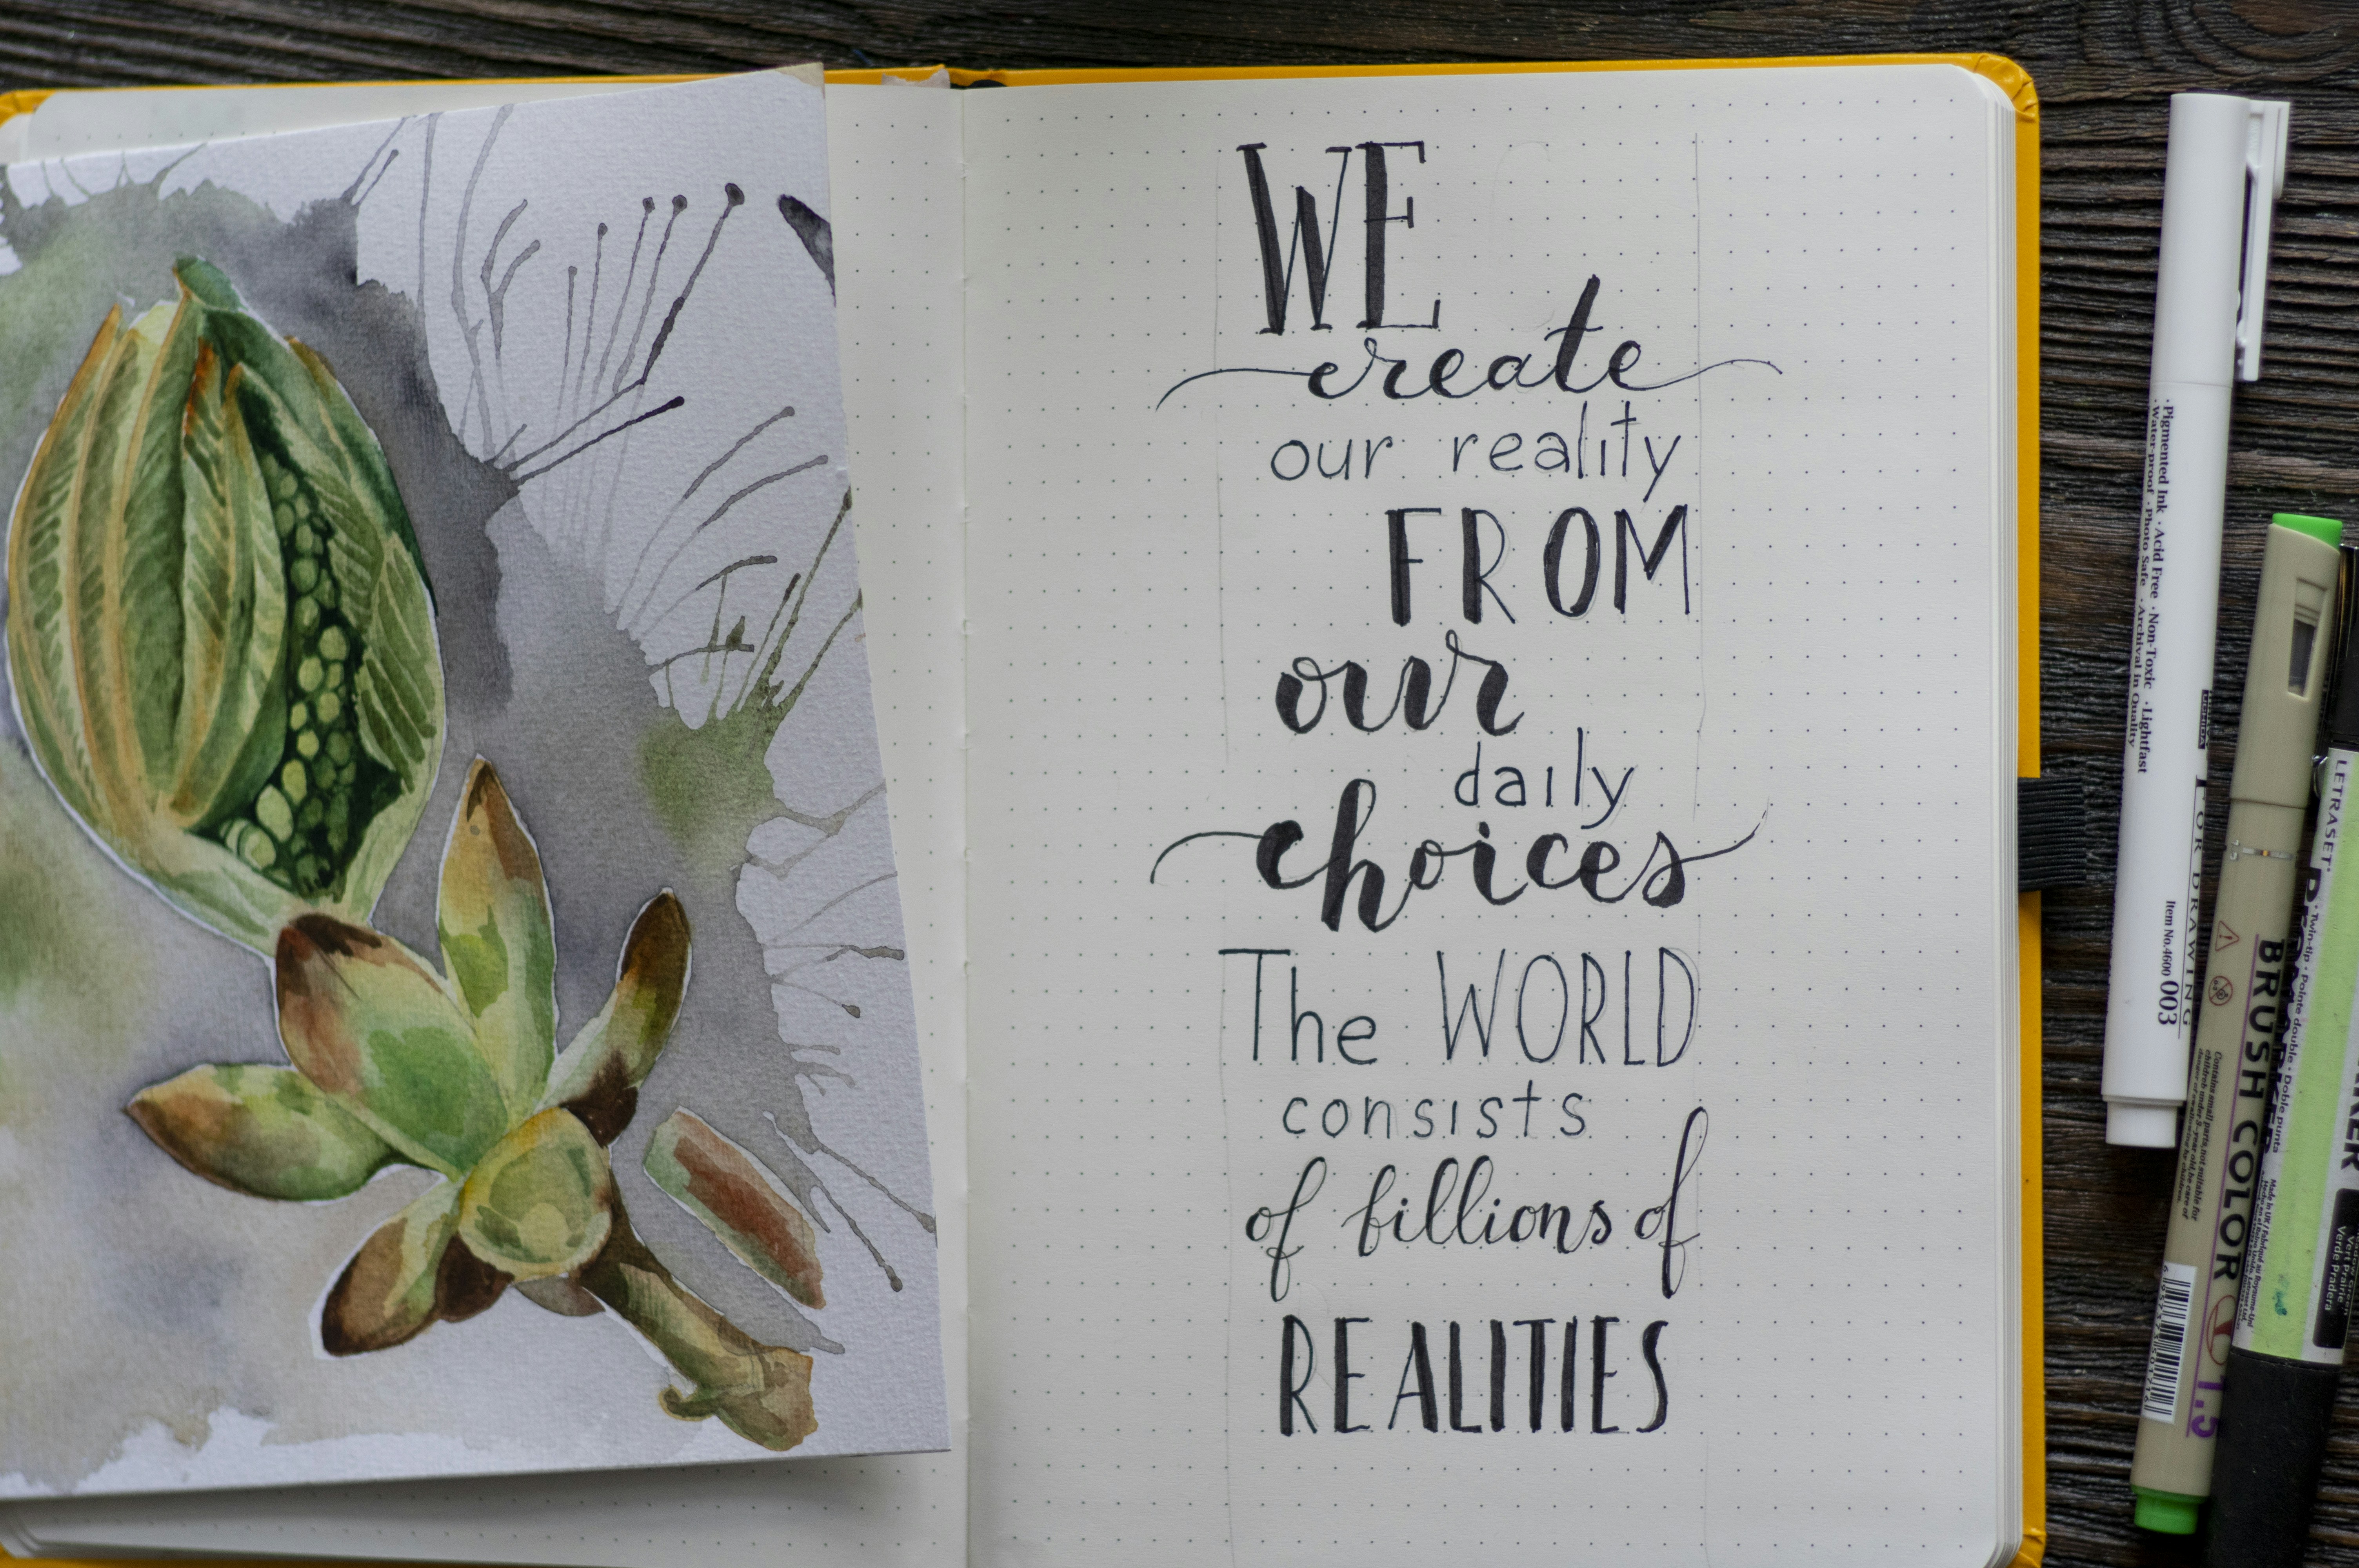 WE
create
our reality
FROM
our
daily
choices
The WORLD
consists
of billions of
REALITIES
·Pigmented Ink ·Acid Free ·Non-Toxic ·Lightfast
·Water-proof ·Photo Safe ·Archival in Quality
FOR DRAWING
Item No.4600 003
BRUSH COLOR
1.5
LETRASET
Twin-tip · pointe double · Doble punta
Vert prairie
Verde Pradera